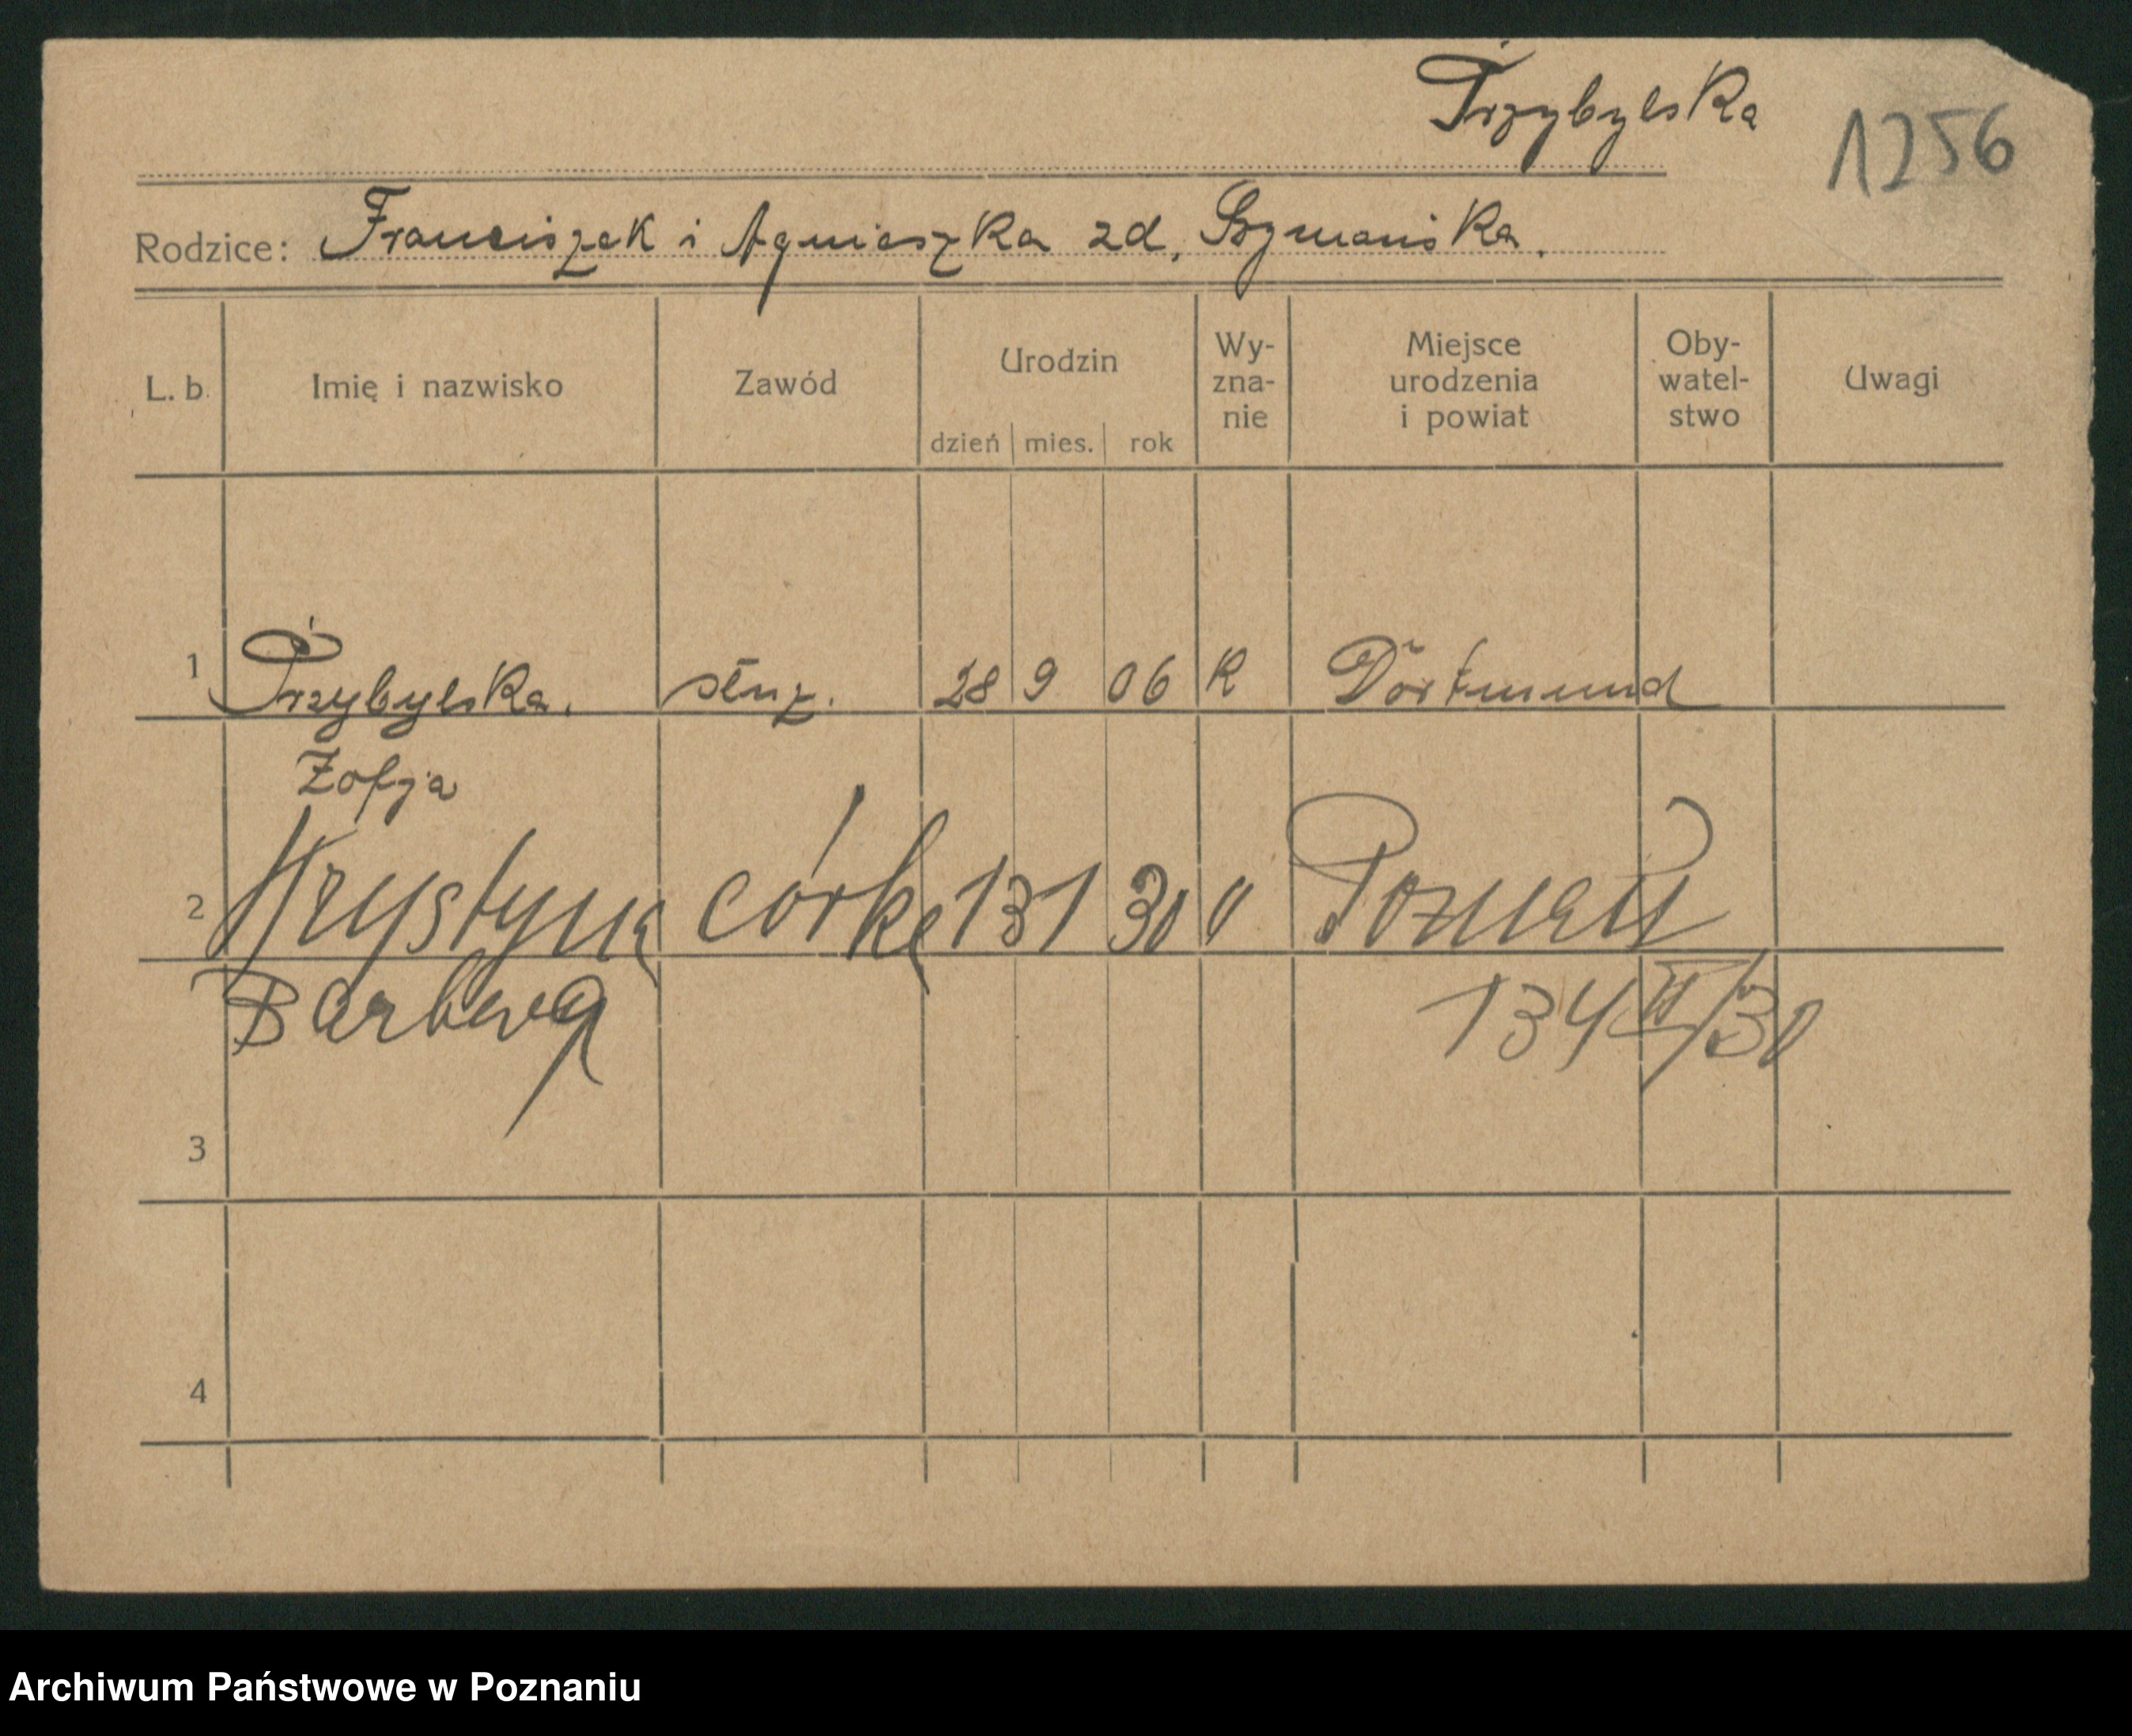 Przybylska
1256
Rodzice: Franciszek i Agnieszka zd. Szymańska.
L. b. Imię i nazwisko Zawód Urodzin dzień mies. rok Wy-zna-nie Miejsce urodzenia i powiat Oby-watel-stwo Uwagi
1 Przybylska. służ. 28 9 06 K Dortmund
Zofja
2 Krystyna córka 13 1 30 " Poznań
Barbara
134 II/30
3
4
Archiwum Państwowe w Poznaniu